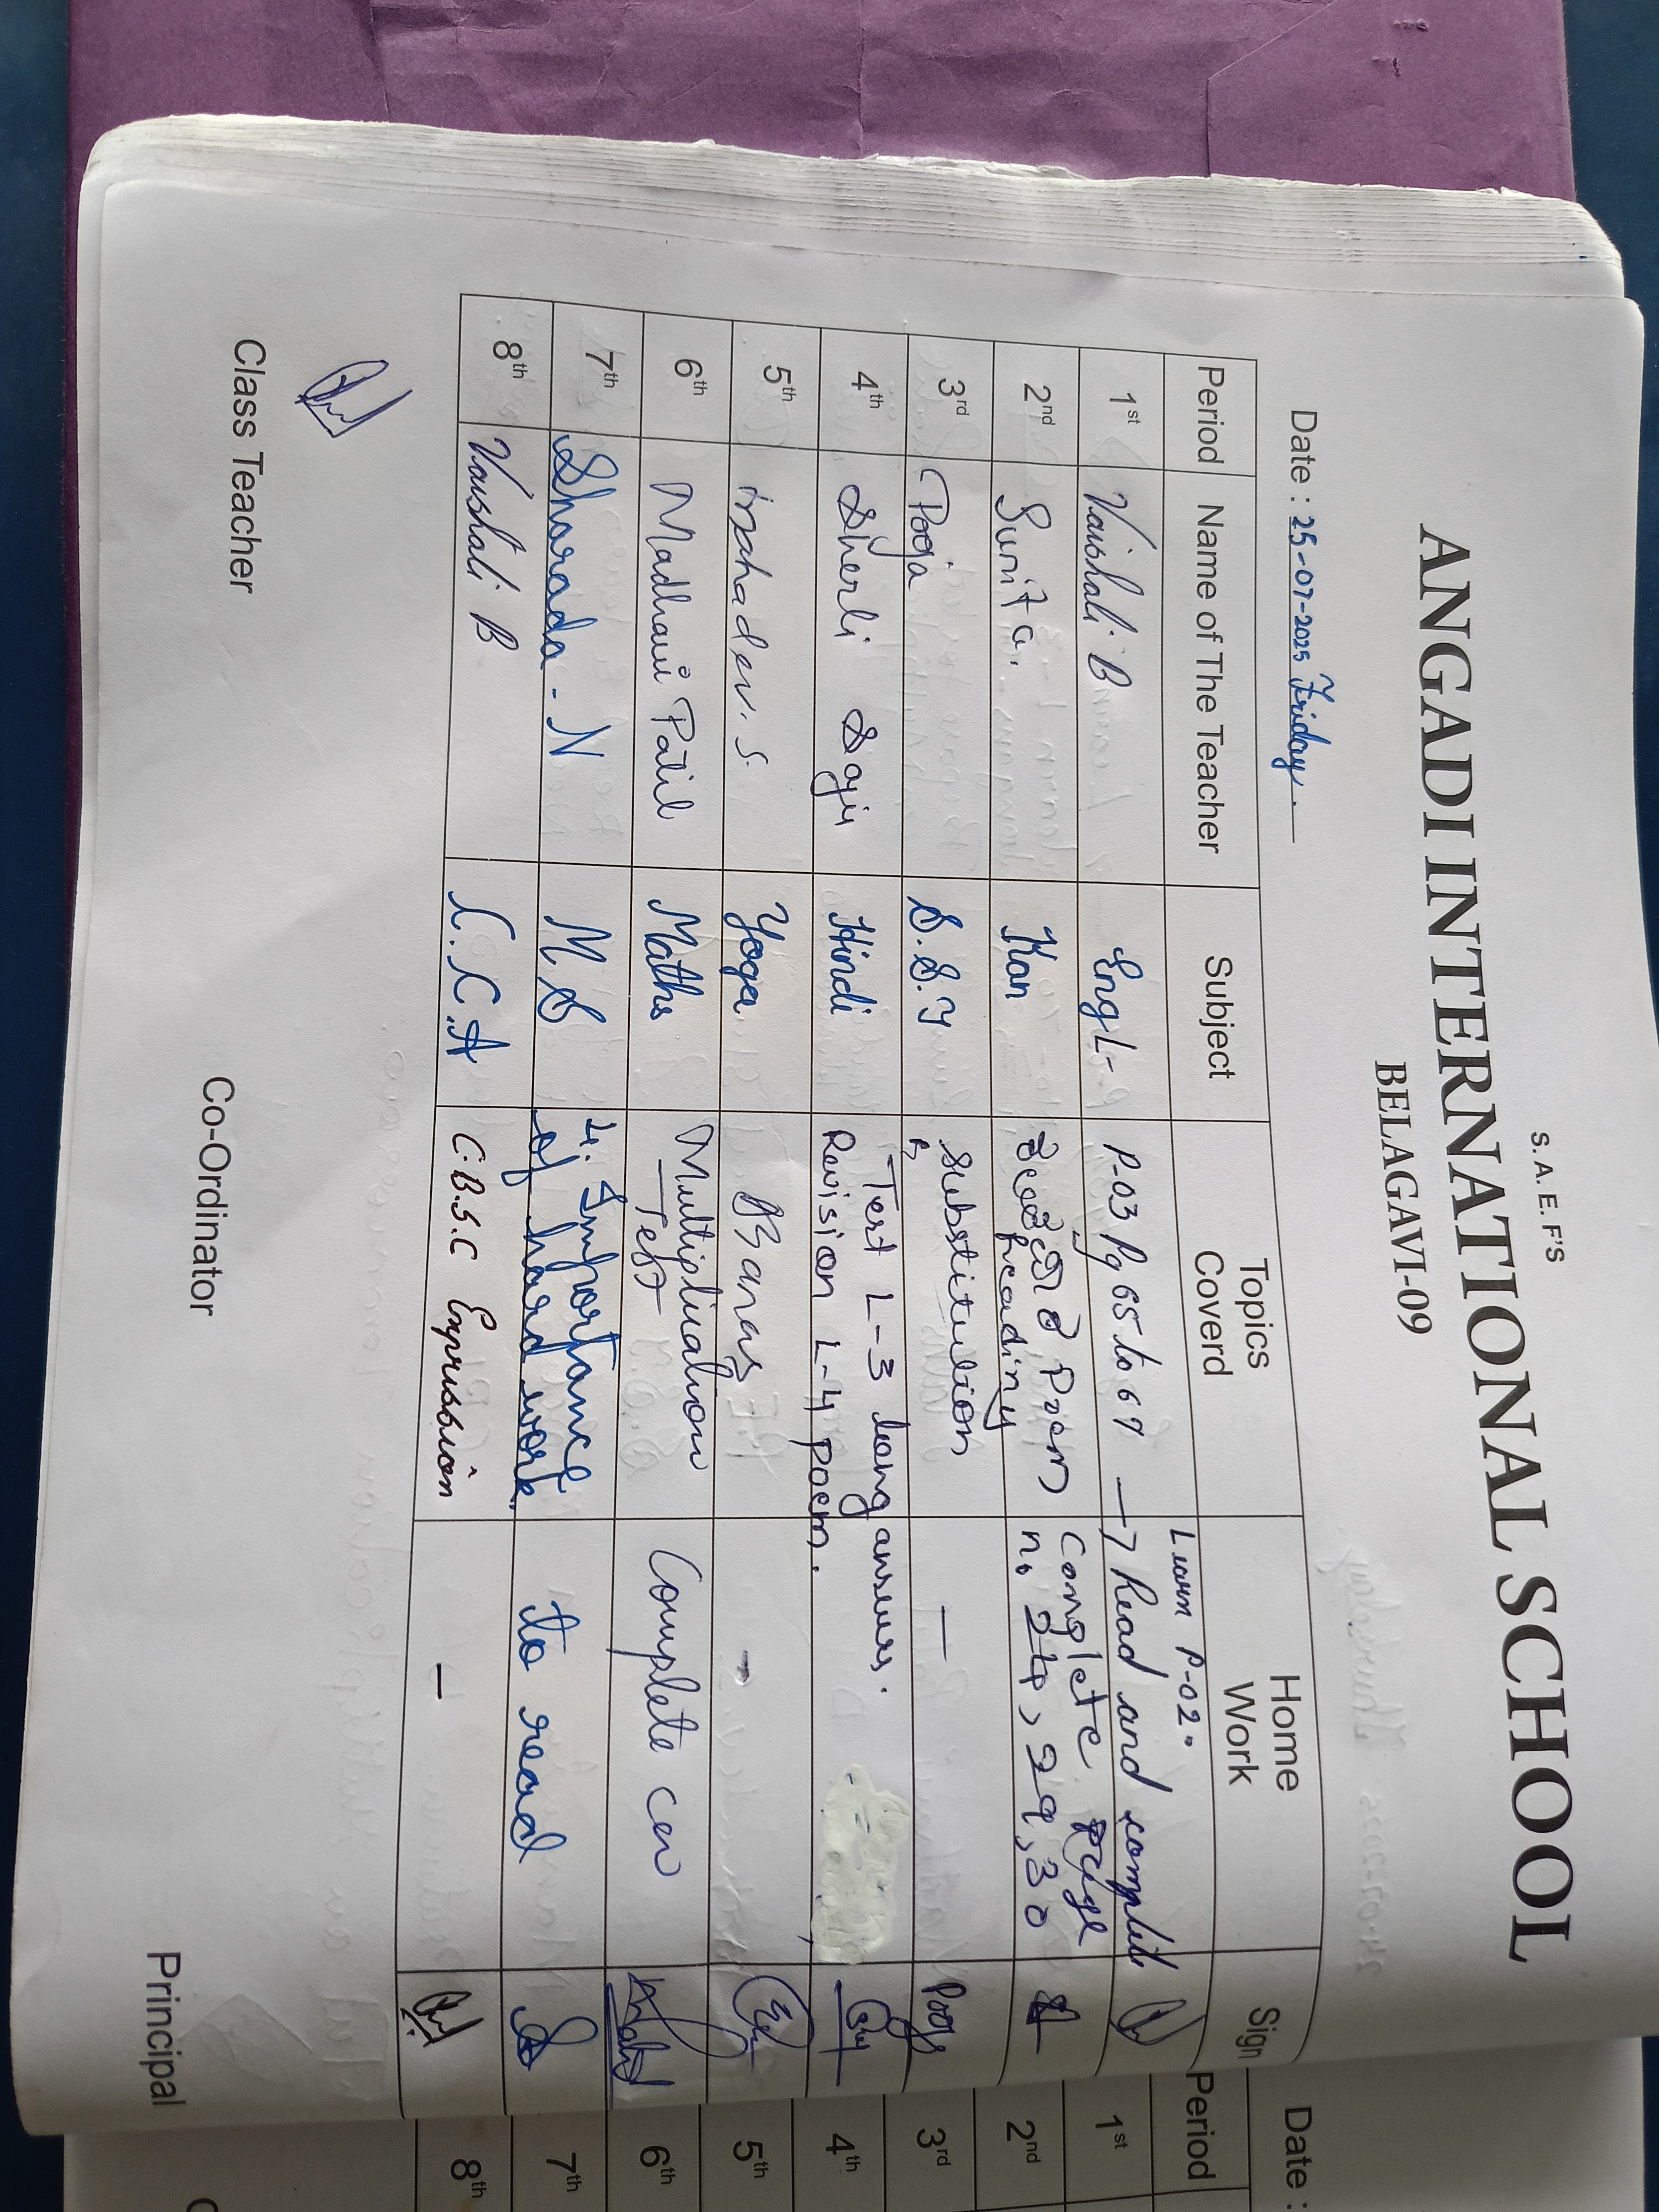 S.A.E.F'S
ANGADI INTERNATIONAL SCHOOL
BELAGAVI-09
Date : 25-07-2025 Friday.
Period Name of The Teacher Subject Topics Coverd Home Work Sign
1st Vaishali B Eng L- P-03 Pg 65 to 67 Learn P-02. → Read and complete
2nd Sunita. Kan Poem reading Complete page no 24, 29, 30
3rd Pooja S.S.T Substitution — Pooja
4th Sherli Sayi Hindi Test L-3 long answers. Revision L-4 Poem.
5th Mahadev. S Yoga Asanas -
6th Madhavi Patil Maths Multiplication Test Complete CW
7th Sharada - N M S 4. Importance of hard work. to read
8th Vaishali B C.C.A C.B.S.C Expression -
Class Teacher Co-Ordinator Principal
Date :
Period
1st
2nd
3rd
4th
5th
6th
7th
8th